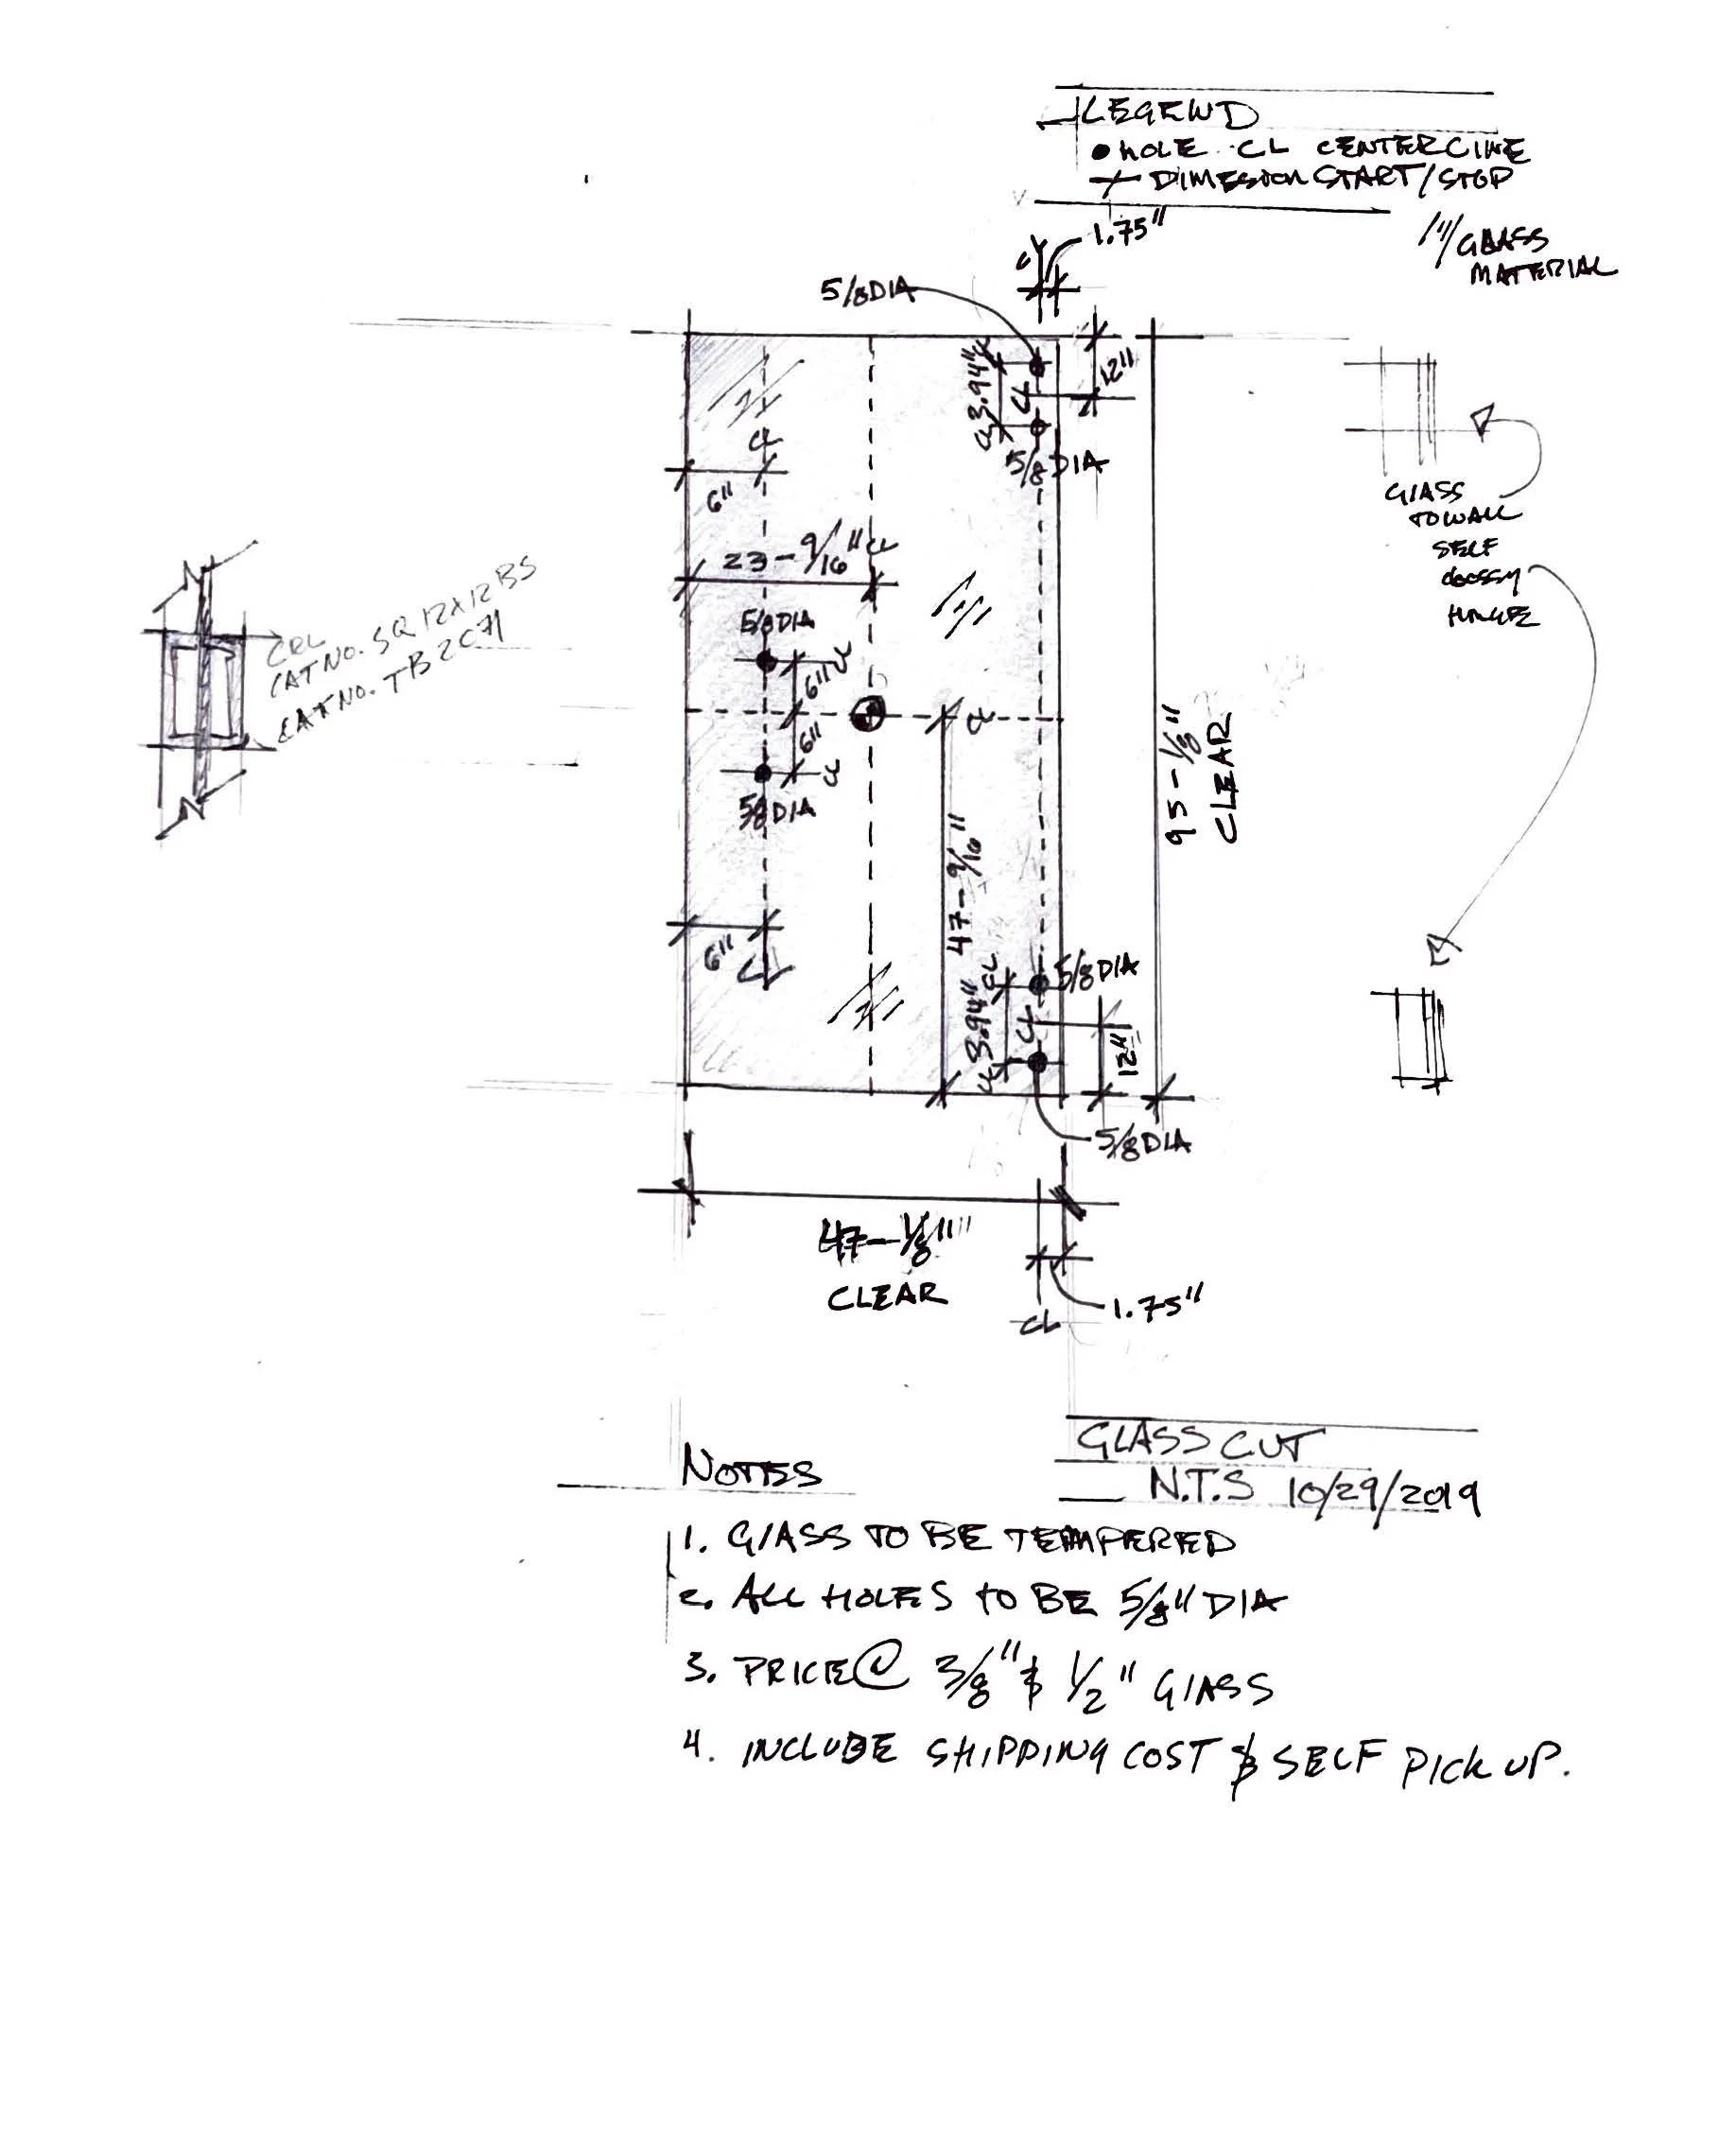 LEGEND
HOLE CL CENTERLINE
DIMESION START/STOP
GLASS
MATERIAL
1.75"
5/8 DIA
12"
CL
3.94"
CL
CL
5/8 DIA
CL
6"
GLASS
TO WALL
SELF
HINGE
23-9/16" CL
5/8 DIA
6"
CL
CRL
CAT NO. SQ 12X12 BS
CAT NO. TB2C71
CL
6"
CL
5/8 DIA
95-1/8"
CLEAR
47-9/16"
6"
CL
5/8 DIA
CL
3.94"
CL
CL
12"
5/8 DIA
47-1/8"
CLEAR
1.75"
CL
GLASS CUT
N.T.S 10/29/2019
NOTES
1. GLASS TO BE TEMPERED
2. ALL HOLES TO BE 5/8" DIA
3. PRICE @ 3/8" & 1/2" GLASS
4. INCLUDE SHIPPING COST & SELF PICK UP.